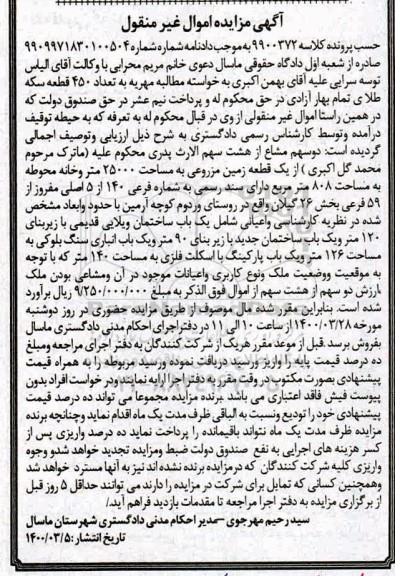 آگهی مزایده اموال غیر منقول
حسب پرونده کلاسه ۹۹۰۰۳۷۲ به موجب دادنامه شماره شماره ۹۹۰۹۹۷۱۸۳۰۱۰۰۵۰۴
صادره از شعبه اول دادگاه حقوقی ماسال دعوی خانم مریم محرابی با وکالت آقای الیاس
توسه سرایی علیه آقای بهمن اکبری به خواسته مطالبه مهریه به تعداد ۴۵۰ قطعه سکه
طلا ی تمام بهار آزادی در حق محکوم له و پرداخت نیم عشر در حق صندوق دولت که
در همین راستا اموال غیر منقولی از وی در قبال محکوم له به تعرفه که به حیطه توقیف
درآمده وتوسط کارشناس رسمی دادگستری به شرح ذیل ارزیابی وتوصیف اجمالی
گردیده است: دوسهم مشاع از هشت سهم الارث پدری محکوم علیه (ماترک مرحوم
محمد گل اکبری ) از یک قطعه زمین مزروعی به مساحت ۲۵۰۰۰ متر وخانه محوطه
به مساحت ۸۰۸ متر مربع دارای سند رسمی به شماره فرعی ۱۴۰ از ۵ اصلی مفروز از
۵۹ فرعی بخش ۲۶ گیلان واقع در روستای وردوم کوچه آرمین با حدود وابعاد مشخص
شده در نظریه کارشناسی واعیانی شامل یک باب ساختمان ویلایی قدیمی با زیربنای
۱۲۰ متر ویک باب ساختمان جدید با زیر بنای ۹۰ متر ویک باب انباری سنگ بلوکی به
مساحت ۱۲۶ متر ویک باب پارکینگ با اسکلت فلزی به مساحت ۱۴۰ متر که با توجه
به موقعیت ووضعیت ملک ونوع کاربری واعیانات موجود در آن ومشاعی بودن ملک
،ارزش دو سهم از هشت سهم از اموال فوق الذکر به مبلغ ۹/۲۵۰/۰۰۰/۰۰۰ ریال برآورد
شده است. بنابراین مقرر شده مال موصوف از طریق مزایده حضوری در روز دوشنبه
مورخه ۱۴۰۰/۰۳/۲۸ از ساعت ۱۰ الی ۱۱ در دفتراجرای احکام مدنی دادگستری ماسال
بفروش برسد. قبل از موعد مقرر هریک از شرکت کنندگان به دفتر اجرای مراجعه ومبلغ
ده درصد قیمت پایه را واریز ورسید دریافت نموده ورسید مربوطه را به همراه قیمت
پیشنهادی بصورت مکتوب در وقت مقرر به دفتر اجرا ارایه نمایند ودر خواست افراد بدون
پیوست فیش فاقد اعتباری می باشد .برنده مزایده مجموعا می تواند ده درصد قیمت
پیشنهادی خود را تودیع ونسبت به الباقی ظرف مدت یک ماه اقدام نماید وچنانچه برنده
مزایده ظرف مدت یک ماه نتواند باقیمانده را پرداخت نماید ده درصد واریزی پس از
کسر هزینه های اجرایی به نفع صندوق دولت ضبط ومزایده تجدید خواهد شدو وجوه
واریزی کلیه شرکت کنندگان که در مزایده برنده نشده اند نیز به آنها مسترد خواهد شد
وهمچنین کسانی که تمایل برای شرکت در مزایده را دارند می توانند حداقل ۵ روز قبل
از برگزاری مزایده به دفتر اجرا مراجعه تا مقدمات بازدید فراهم آید./
سید رحیم مهرجوی –مدیر احکام مدنی دادگستری شهرستان ماسال
تاریخ انتشار: ۱۴۰۰/۰۳/۵